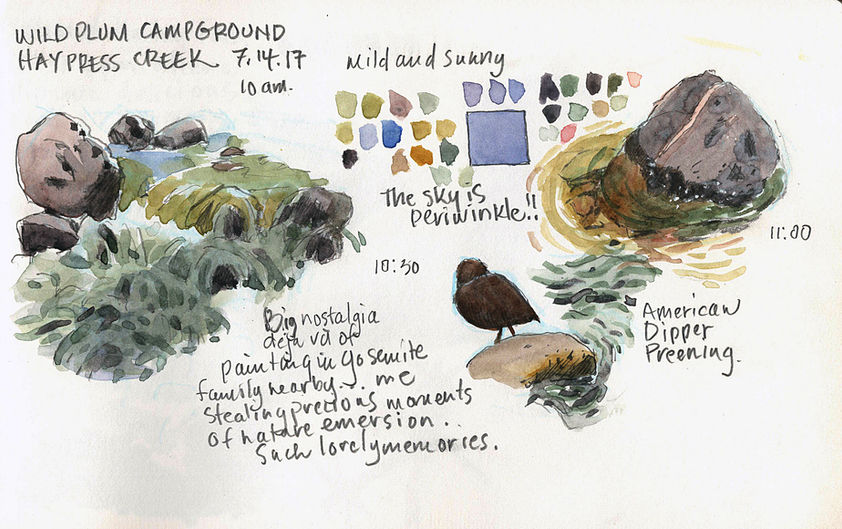 WILD PLUM CAMPGROUND
HAYPRESS CREEK 7.14.17
10 am.
Mild and Sunny
The sky is
periwinkle!!
11:00
10:30
American
Dipper
Preening.
Big nostalgia
deja vu of
painting in Yosemite
family nearby... me
stealing precious moments
of nature emersion..
Such lovely memories.